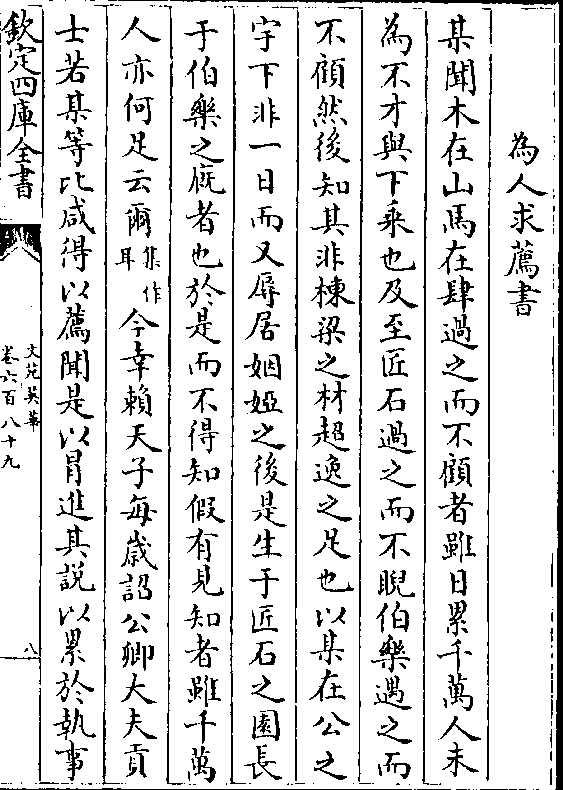 為人求薦書
某聞木在山馬在肆過之而不顧者雖日累千萬人未
為不才與下乗也及至匠石過之而不睨伯樂遇之而
不顧然後知其非棟梁之材超逸之足也以某在公之
宇下非一日而又辱居姻婭之後是生于匠石之園長
于伯樂之廐者也於是而不得知假有見知者雖千萬
人亦何足云爾集作耳今幸賴天子毎歳詔公卿大夫貢
士若某等比咸得以薦聞是以冐進其説以累於執事
欽定四庫全書
文苑英華
卷六百八十九
八